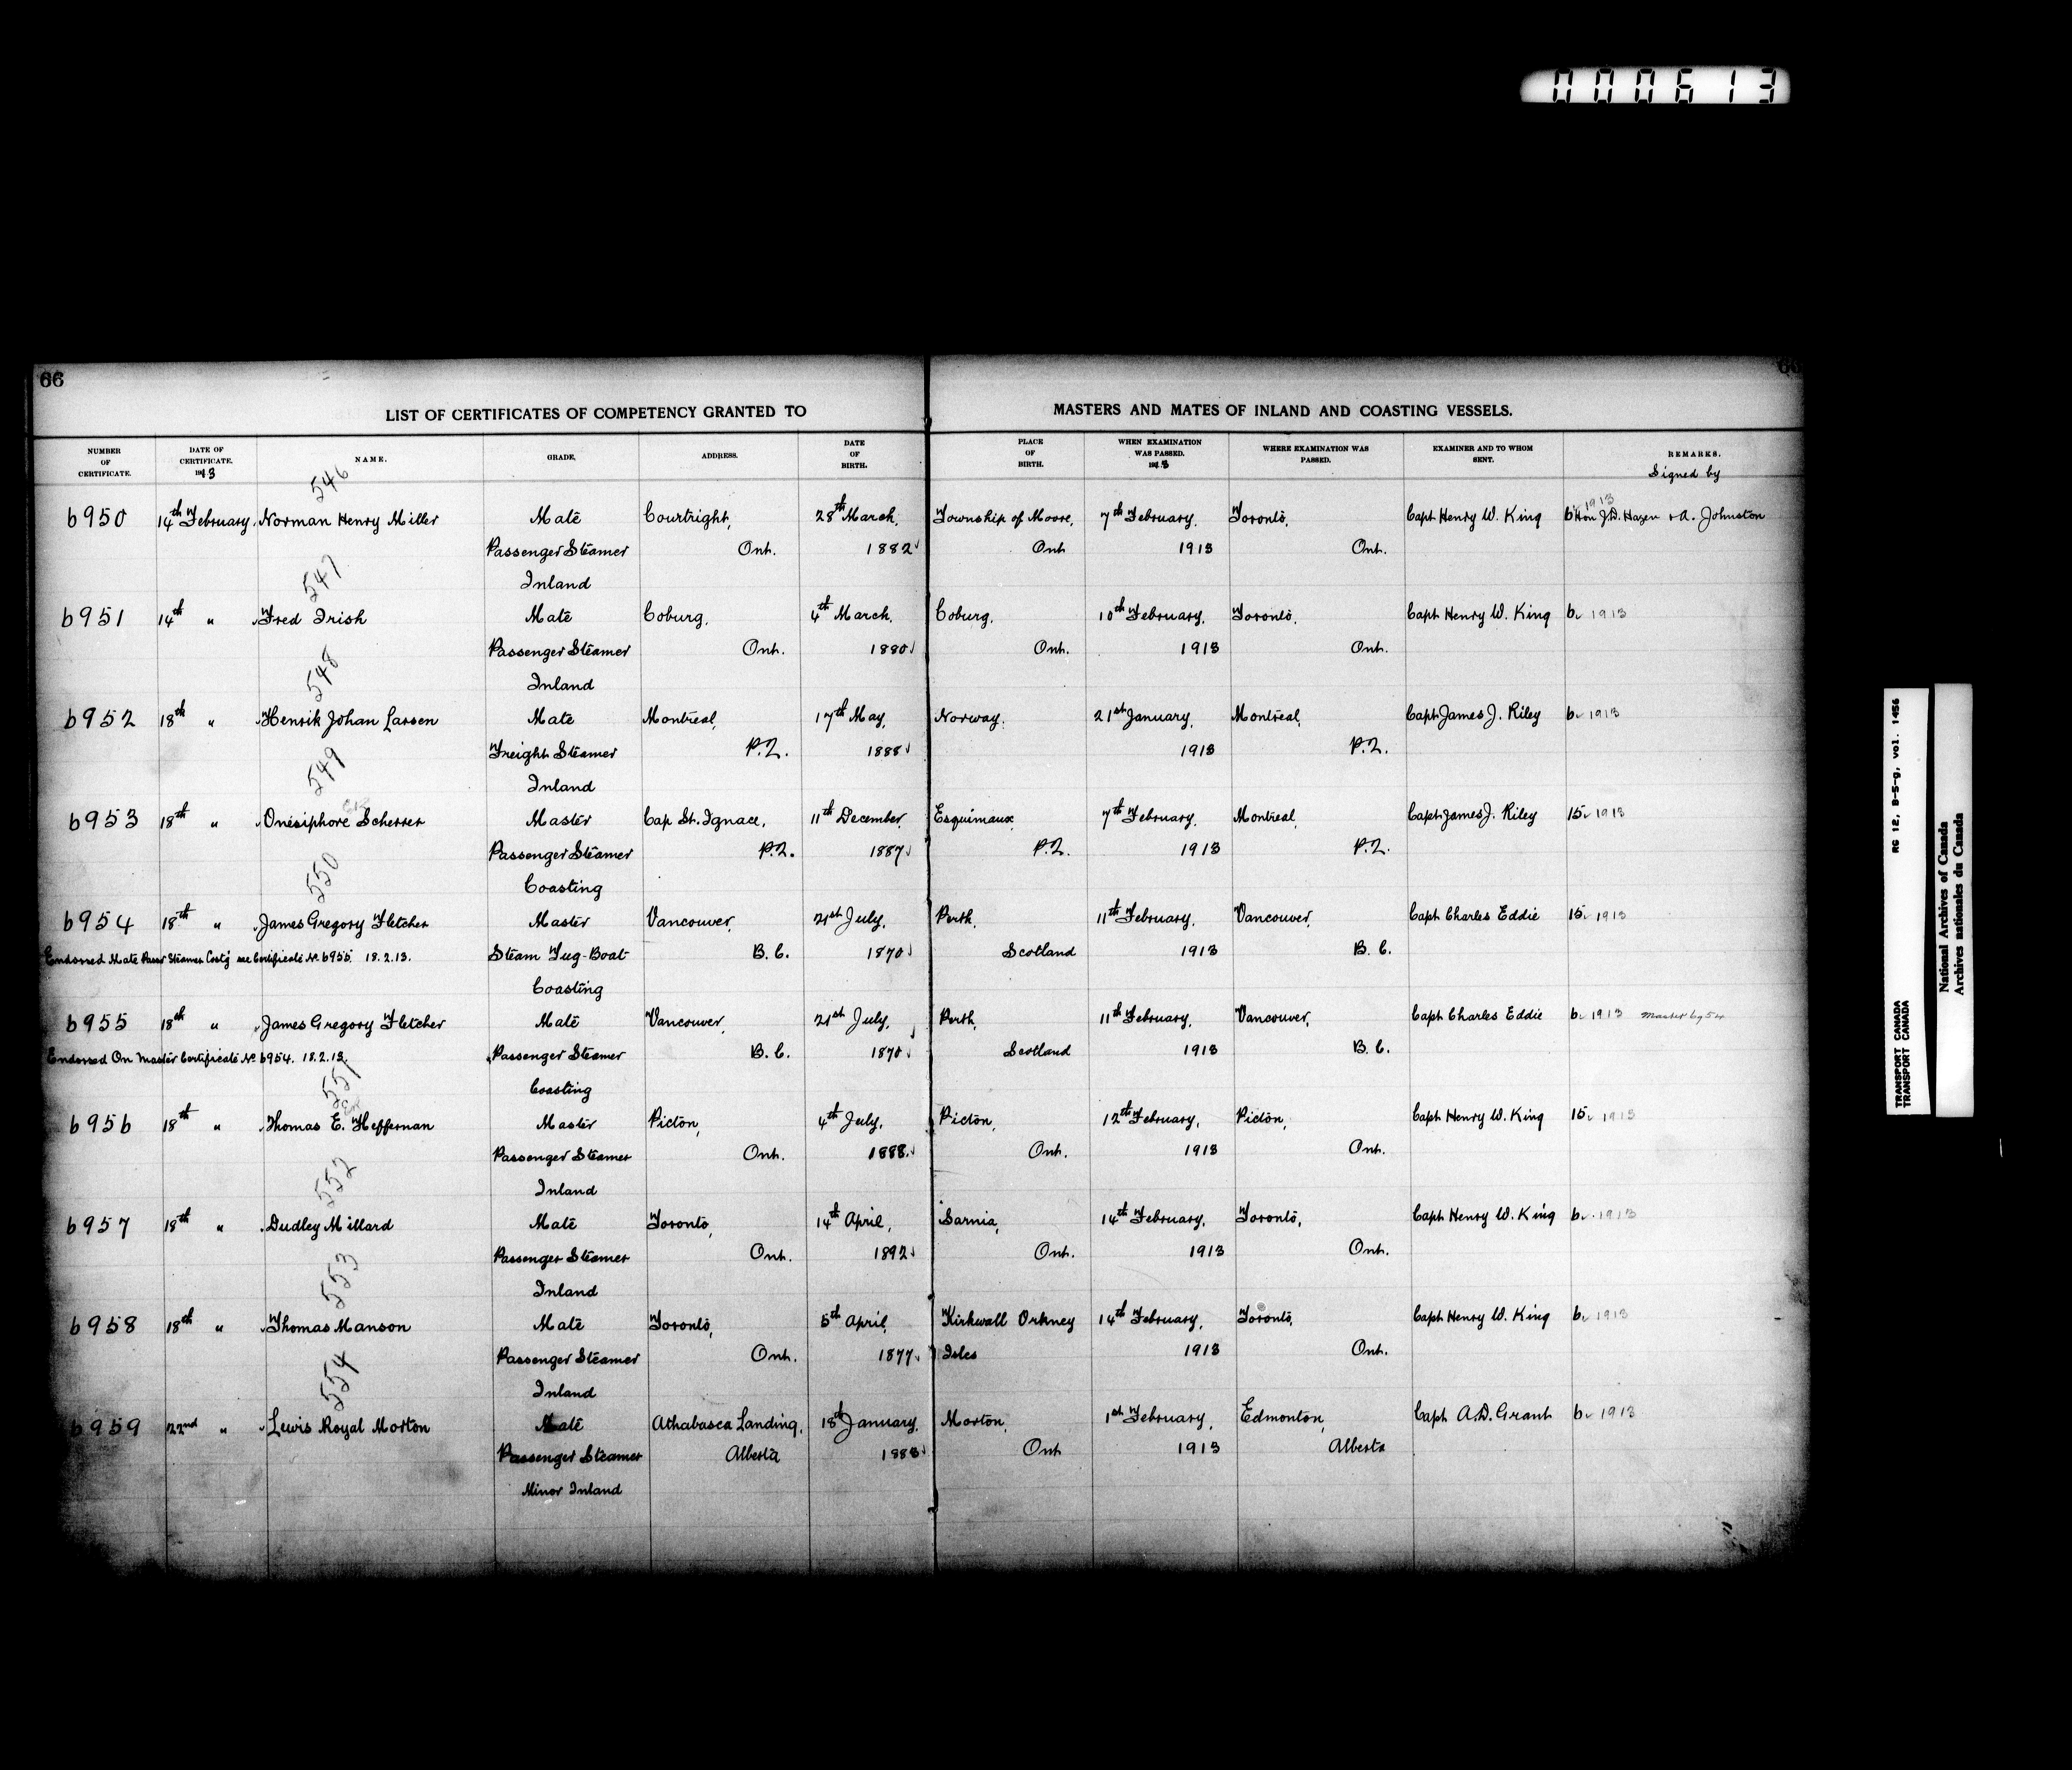 000613
66
LIST OF CERTIFICATES OF COMPETENCY GRANTED TO MASTERS AND MATES OF INLAND AND COASTING VESSELS.
NUMBER OF CERTIFICATE. DATE OF CERTIFICATE. 1913 NAME. GRADE. ADDRESS. DATE OF BIRTH. PLACE OF BIRTH. WHEN EXAMINATION WAS PASSED. 1913 WHERE EXAMINATION WAS PASSED. EXAMINER AND TO WHOM SENT. REMARKS.
Signed by
546
6950 14th February. Norman Henry Miller Mate Courtright, 28th March, Township of Moore, 7th February, Toronto, Capt Henry W. King 6 1913 Hon J.D. Hazen + A. Johnston
Passenger Steamer Ont. 1882 Ont 1913 Ont.
547 Inland
6951 14th " Fred Irish Mate Coburg, 4th March, Coburg, 10th February, Toronto, Capt Henry W. King 6 1913
Passenger Steamer Ont. 1880 Ont. 1913 Ont.
548 Inland
6952 18th " Henrik Johan Larsen Mate Montreal, 17th May, Norway. 21st January, Montreal, Capt James J. Riley 6 1913
Freight Steamer P.Q. 1888 1913 P.Q.
549 Inland
6953 18th " Onésiphore Scherrer Master Cap St. Ignace, 11th December, Esquimaux, 7th February, Montreal, Capt James J. Riley 15 1913
Passenger Steamer P.Q. 1887 P.Q. 1913 P.Q.
550 Coasting
6954 18th " James Gregory Fletcher Master Vancouver, 21st July, Perth, 11th February, Vancouver, Capt Charles Eddie 15 1913
Endorsed Mate Passr Steamer Coast'g see Certificate No. 6955. 18.2.13. Steam Tug-Boat B.C. 1870 Scotland 1913 B.C.
Coasting
6955 18th " James Gregory Fletcher Mate Vancouver, 21st July, Perth, 11th February, Vancouver, Capt Charles Eddie 6 1913 Master 6954
Endorsed On Master Certificate No. 6954. 18.2.13. Passenger Steamer B.C. 1870 Scotland 1913 B.C.
551 Coasting
6956 18th " Thomas E. Heffernan Master Picton, 4th July, Picton, 12th February, Picton, Capt Henry W. King 15 1913
Passenger Steamer Ont. 1888. Ont. 1913 Ont.
552 Inland
6957 18th " Dudley Millard Mate Toronto, 14th April, Sarnia, 14th February, Toronto, Capt Henry W. King 6 1913
Passenger Steamer Ont. 1892 Ont. 1913 Ont.
553 Inland
6958 18th " Thomas Manson Mate Toronto, 5th April, Kirkwall Orkney 14th February, Toronto, Capt Henry W. King 6 1913
Passenger Steamer Ont. 1877 Isles 1913 Ont.
554 Inland
6959 22nd " Lewis Royal Morton Mate Athabasca Landing, 18th January, Morton, 1st February, Edmonton, Capt A.D. Grant 6 1913
Passenger Steamer Alberta 1883 Ont 1913 Alberta
Minor Inland
RG 12, B-5-g, vol. 1456
TRANSPORT CANADA
TRANSPORT CANADA
National Archives of Canada
Archives nationales du Canada